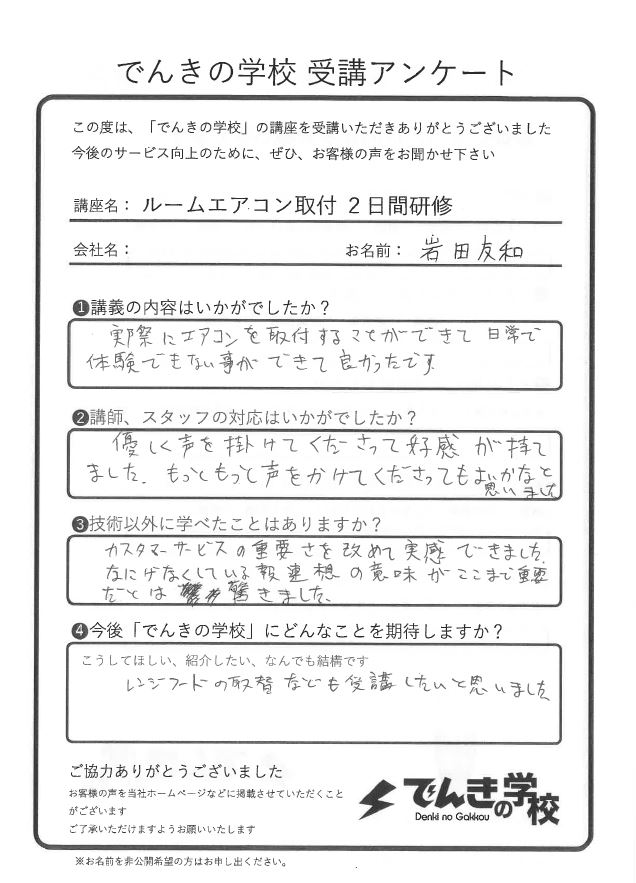 でんきの学校 受講アンケート
この度は、「でんきの学校」の講座を受講いただきありがとうございました
今後のサービス向上のために、ぜひ、お客様の声をお聞かせ下さい
講座名： ルームエアコン取付 2日間研修
会社名： お名前： 岩田友和
❶講義の内容はいかがでしたか？
実際にエアコンを取付することができて 日常で
体験できない事ができて良かったです。
❷講師、スタッフの対応はいかがでしたか？
優しく声を掛けてくださって好感が持て
ました。もっともっと声をかけてくださってもよいかなと
思いました
❸技術以外に学べたことはありますか？
カスタマーサービスの重要さを改めて実感できました。
なにげなくしている報連想の意味がここまで重要
だとは 驚きました。
❹今後「でんきの学校」にどんなことを期待しますか？
こうしてほしい、紹介したい、なんでも結構です
レンジフードの取替なども受講したいと思いました
ご協力ありがとうございました
お客様の声を当社ホームページなどに掲載させていただくこと
がございます
ご了承いただけますようお願いいたします
でんきの学校
Denki no Gakkou
※お名前を非公開希望の方はお申し出ください。